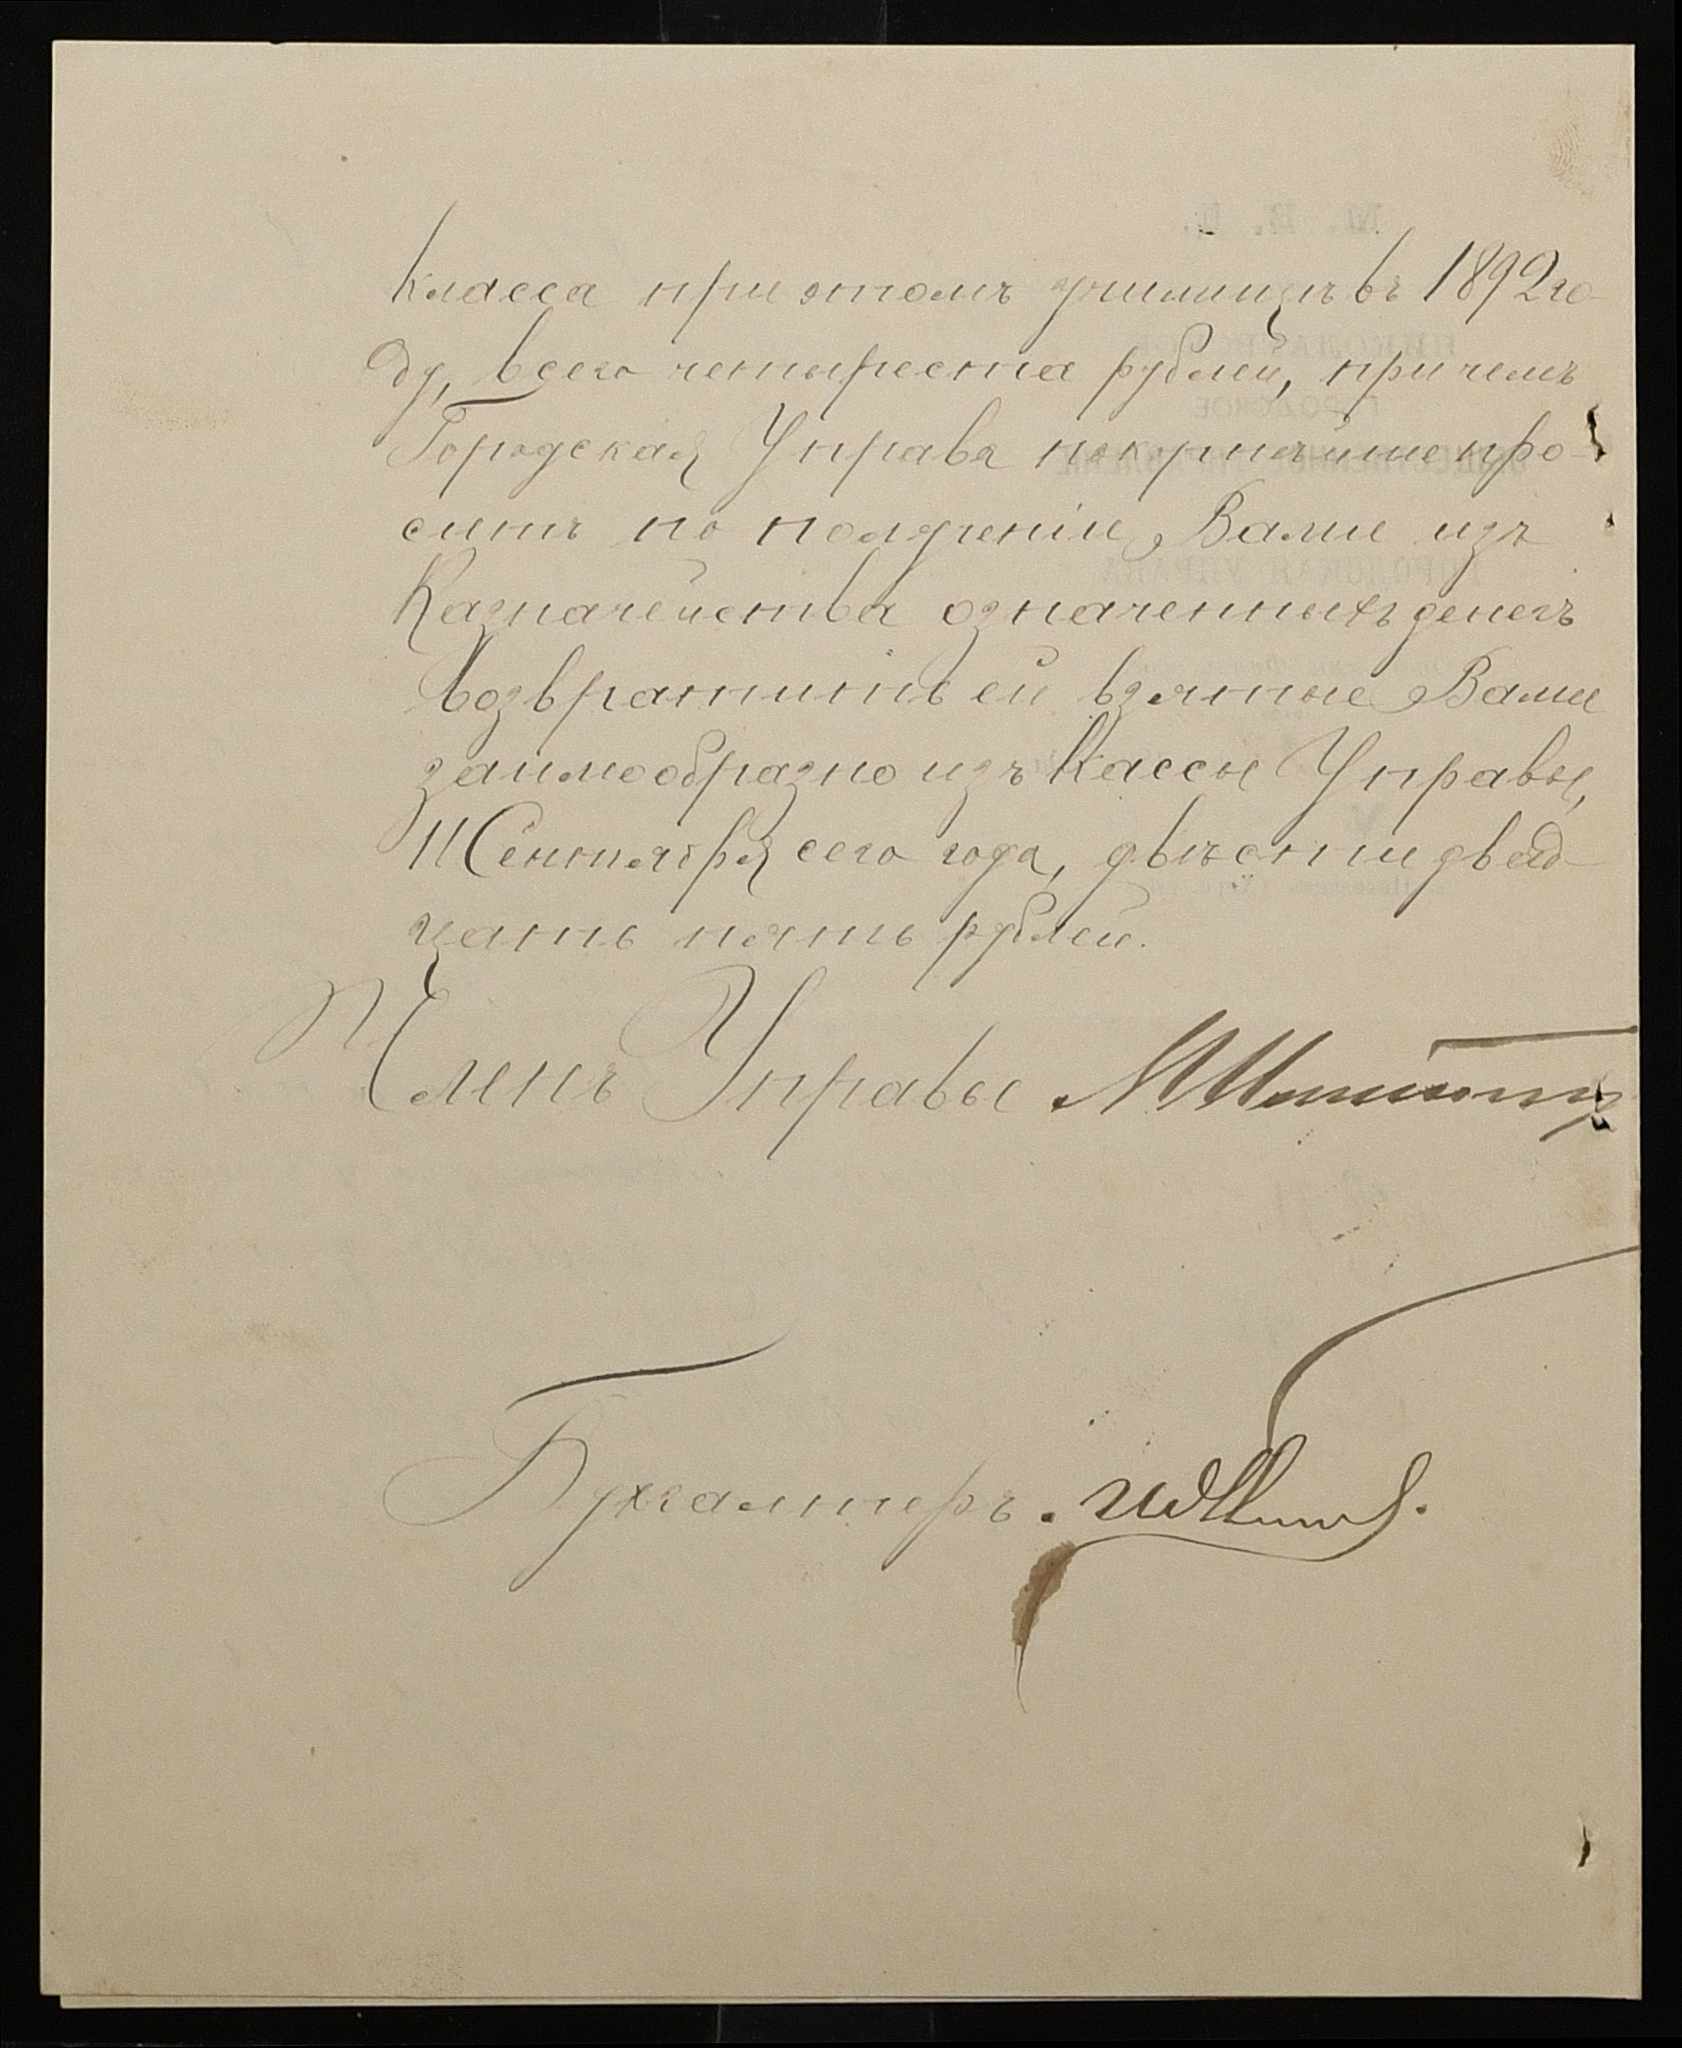 класса при этомъ училищѣ въ 1892 го-
ду, всего четыреста рублей, при чемъ
Городская Управа покорнѣйше про-
ситъ по полученіи Вами изъ
Казначейства означенныхъ денегъ
возвратить ей взятые Вами
заимообразно изъ Кассы Управы,
11 Сентября сего года, двѣсти двад-
цать пять рублей.
Членъ Управы
Бухгалтеръ